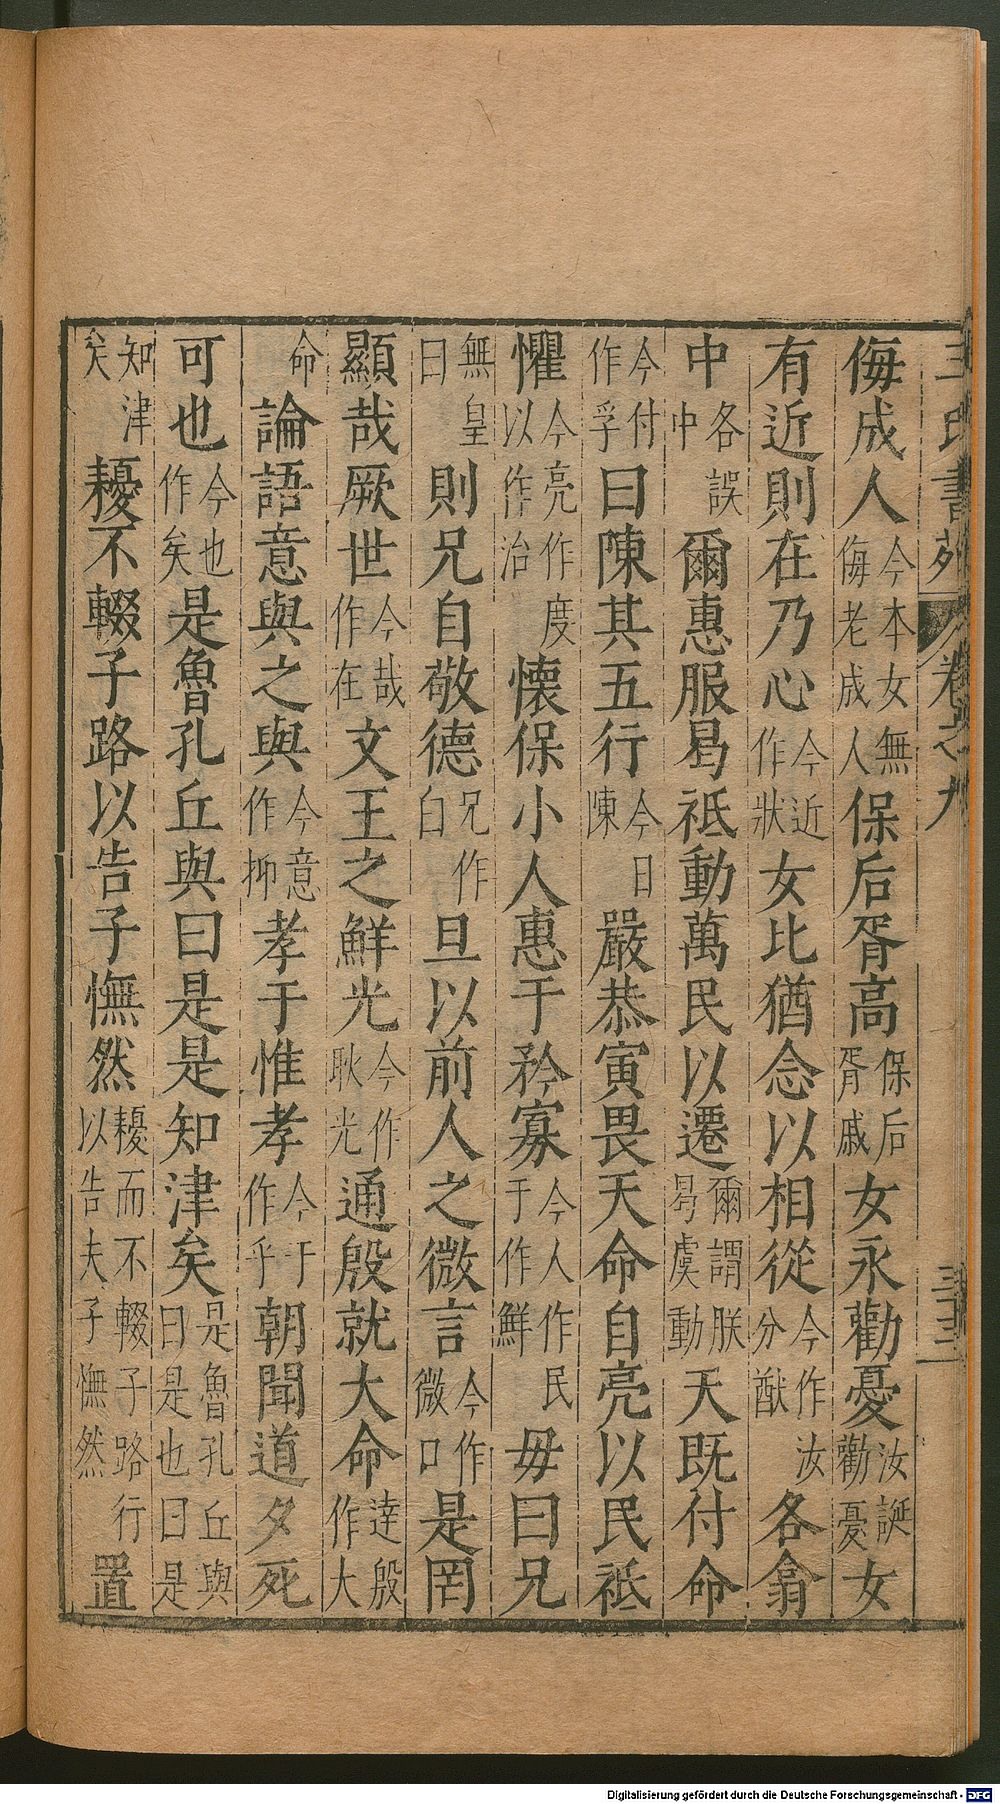 王氏書苑 卷之九 三三
侮成人今本女無侮老成人保后胥高保后胥戚女永勸憂汝誕勸憂女
有近則在乃心今近作狀女比猶念以相從今作汝分猷各翕
中各誤中爾惠服曷祗動萬民以遷爾謂朕曷虔動天既付命
今付作孚曰陳其五行今日陳嚴恭寅畏天命自亮以民祗
懼今亮作度以作治懷保小人惠于矜寡今人作民于作鮮毋曰兄
無皇曰則兄自敬德兄作白旦以前人之微言今作微口是罔
顯哉厥世今哉作在文王之鮮光今作耿光通殷就大命達殷作大
命論語意與之與今意作抑孝于惟孝今于作乎朝聞道夕死
可也今也作矣是魯孔丘與曰是是知津矣是魯孔丘與曰是也曰是
知津矣耰不輟子路以告子憮然耰而不輟子路行以告夫子憮然置
Digitalisierung gefördert durch die Deutsche Forschungsgemeinschaft - DFG